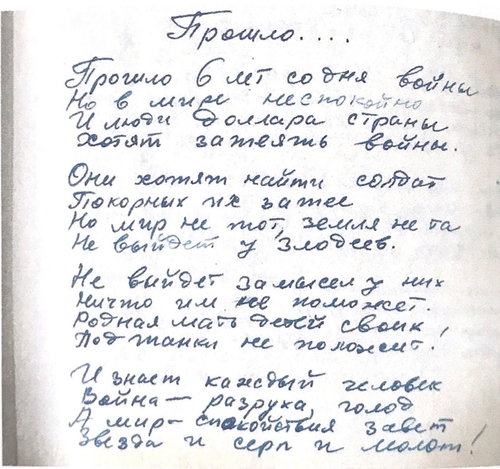 Прошло....
Прошло 6 лет со дня войны
Но в мире неспокойно
И люди доллара страны
Хотят затеять войны.
Они хотят найти солдат
Покорных их затее
Но мир не тот, земля не та
Не выйдет у злодеев.
Не выйдет замысел у них
Ничто им не поможет.
Родная мать детей своих,
Под танки не положит!
И знает каждый человек
Война – разруха, голод
А мир – спокойствия завет
Звезда и серп и молот!